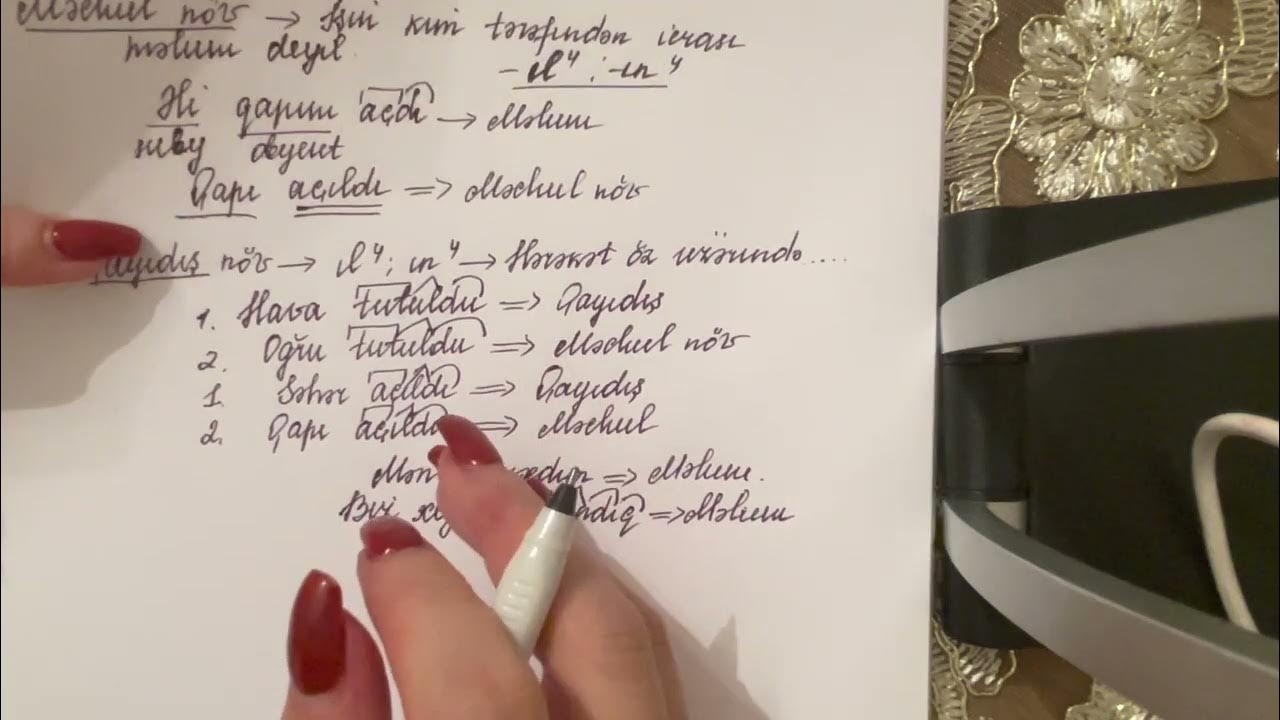 Məchul növ → İşin kim tərəfindən icrası
məlum deyil.
-ıl⁴ ; -ın⁴
Əli qapını açdı → Məlum
Qapı açıldı => Məchul növ
Qayıdış növ → ıl⁴; ın⁴ → Hərəkət öz üzərində ....
1. Hava tutuldu => Qayıdış
2. Oğru tutuldu => Məchul növ
1. Səhər açıldı => Qayıdış
2. Qapı açıldı => Məchul
Mən => Məlum.
Biz => Məlum